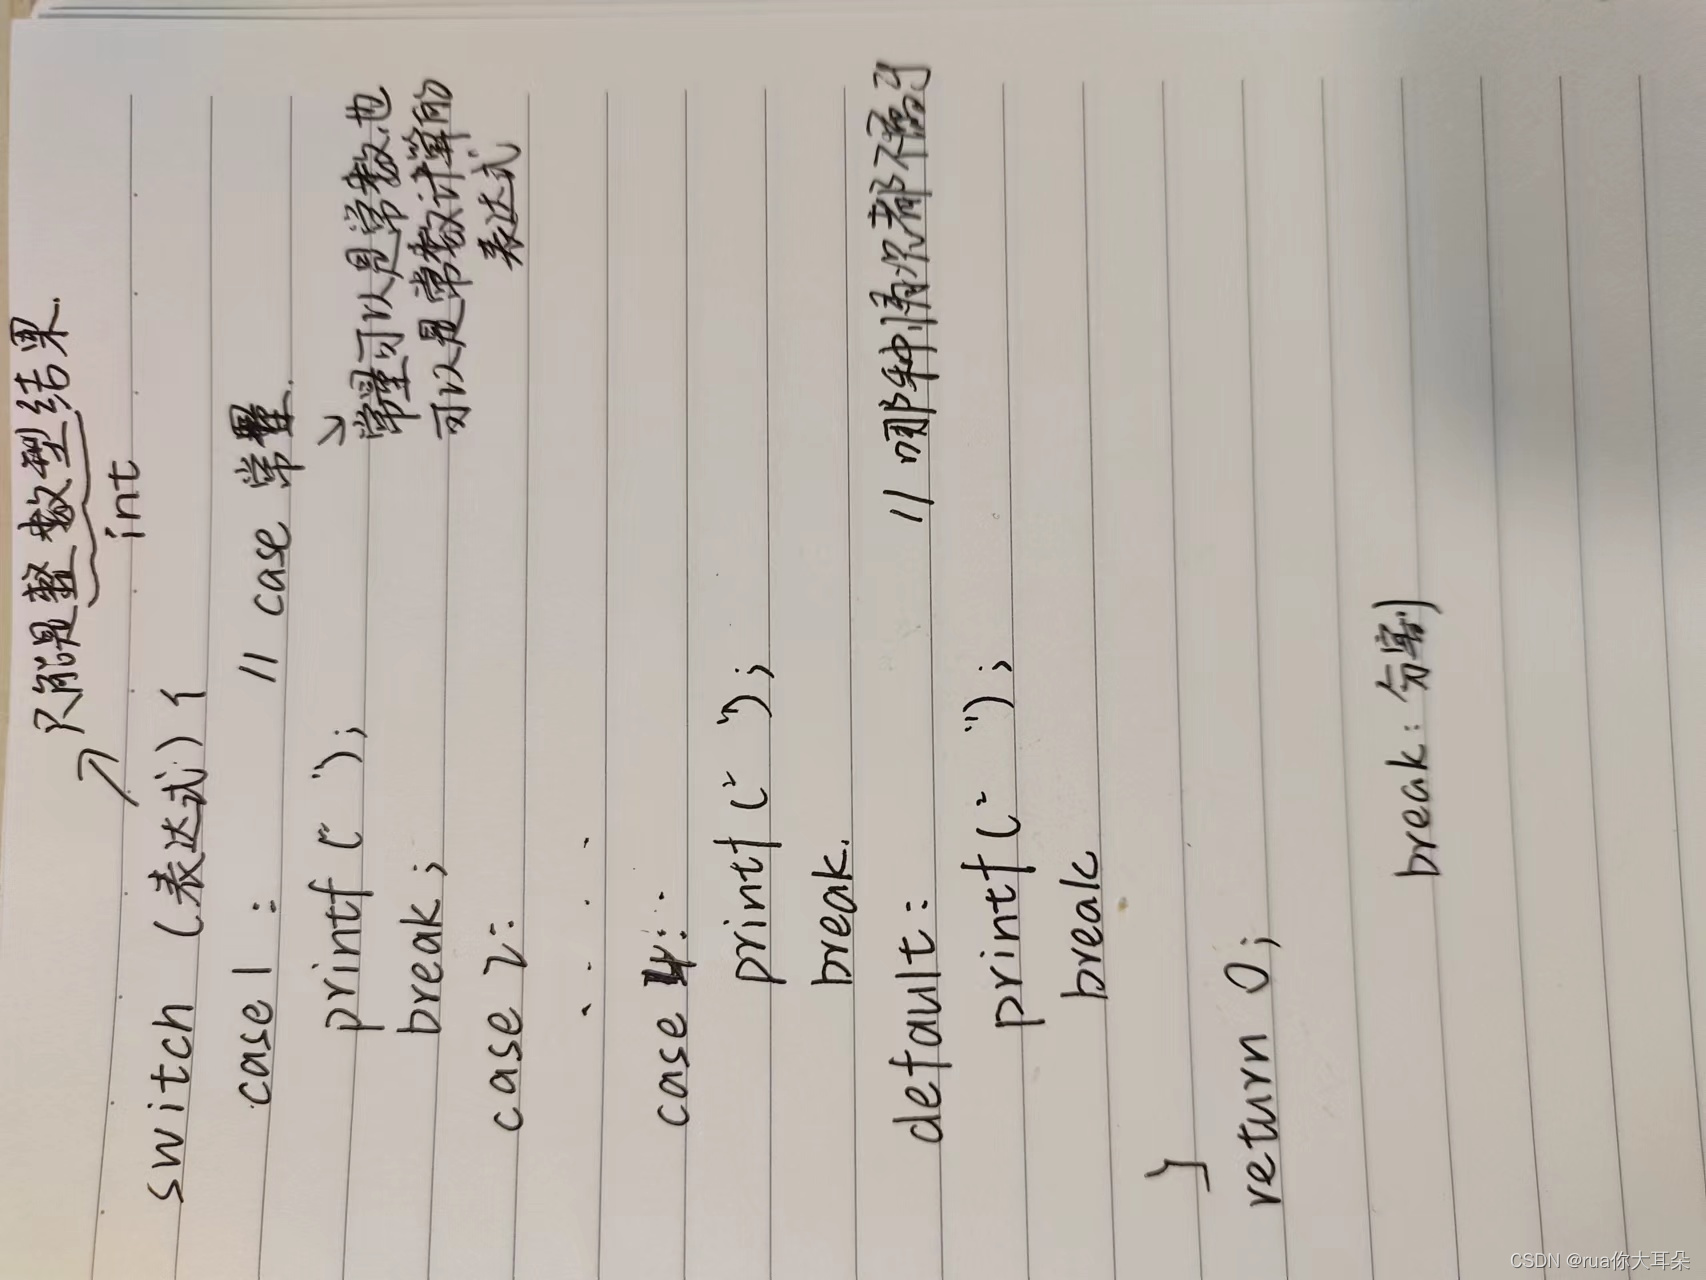 只能是整数型结果.
int
switch (表达式) {
case 1 : // case 常量.
printf (" ");
break ;
常量可以是常数也
可以是常数计算的
表达式
case 2:
. . . .
case 4:
printf (" ");
break.
default: // 哪种情况都不属于
printf (" ");
break
}
return 0;
break: 分割
CSDN @rua你大耳朵